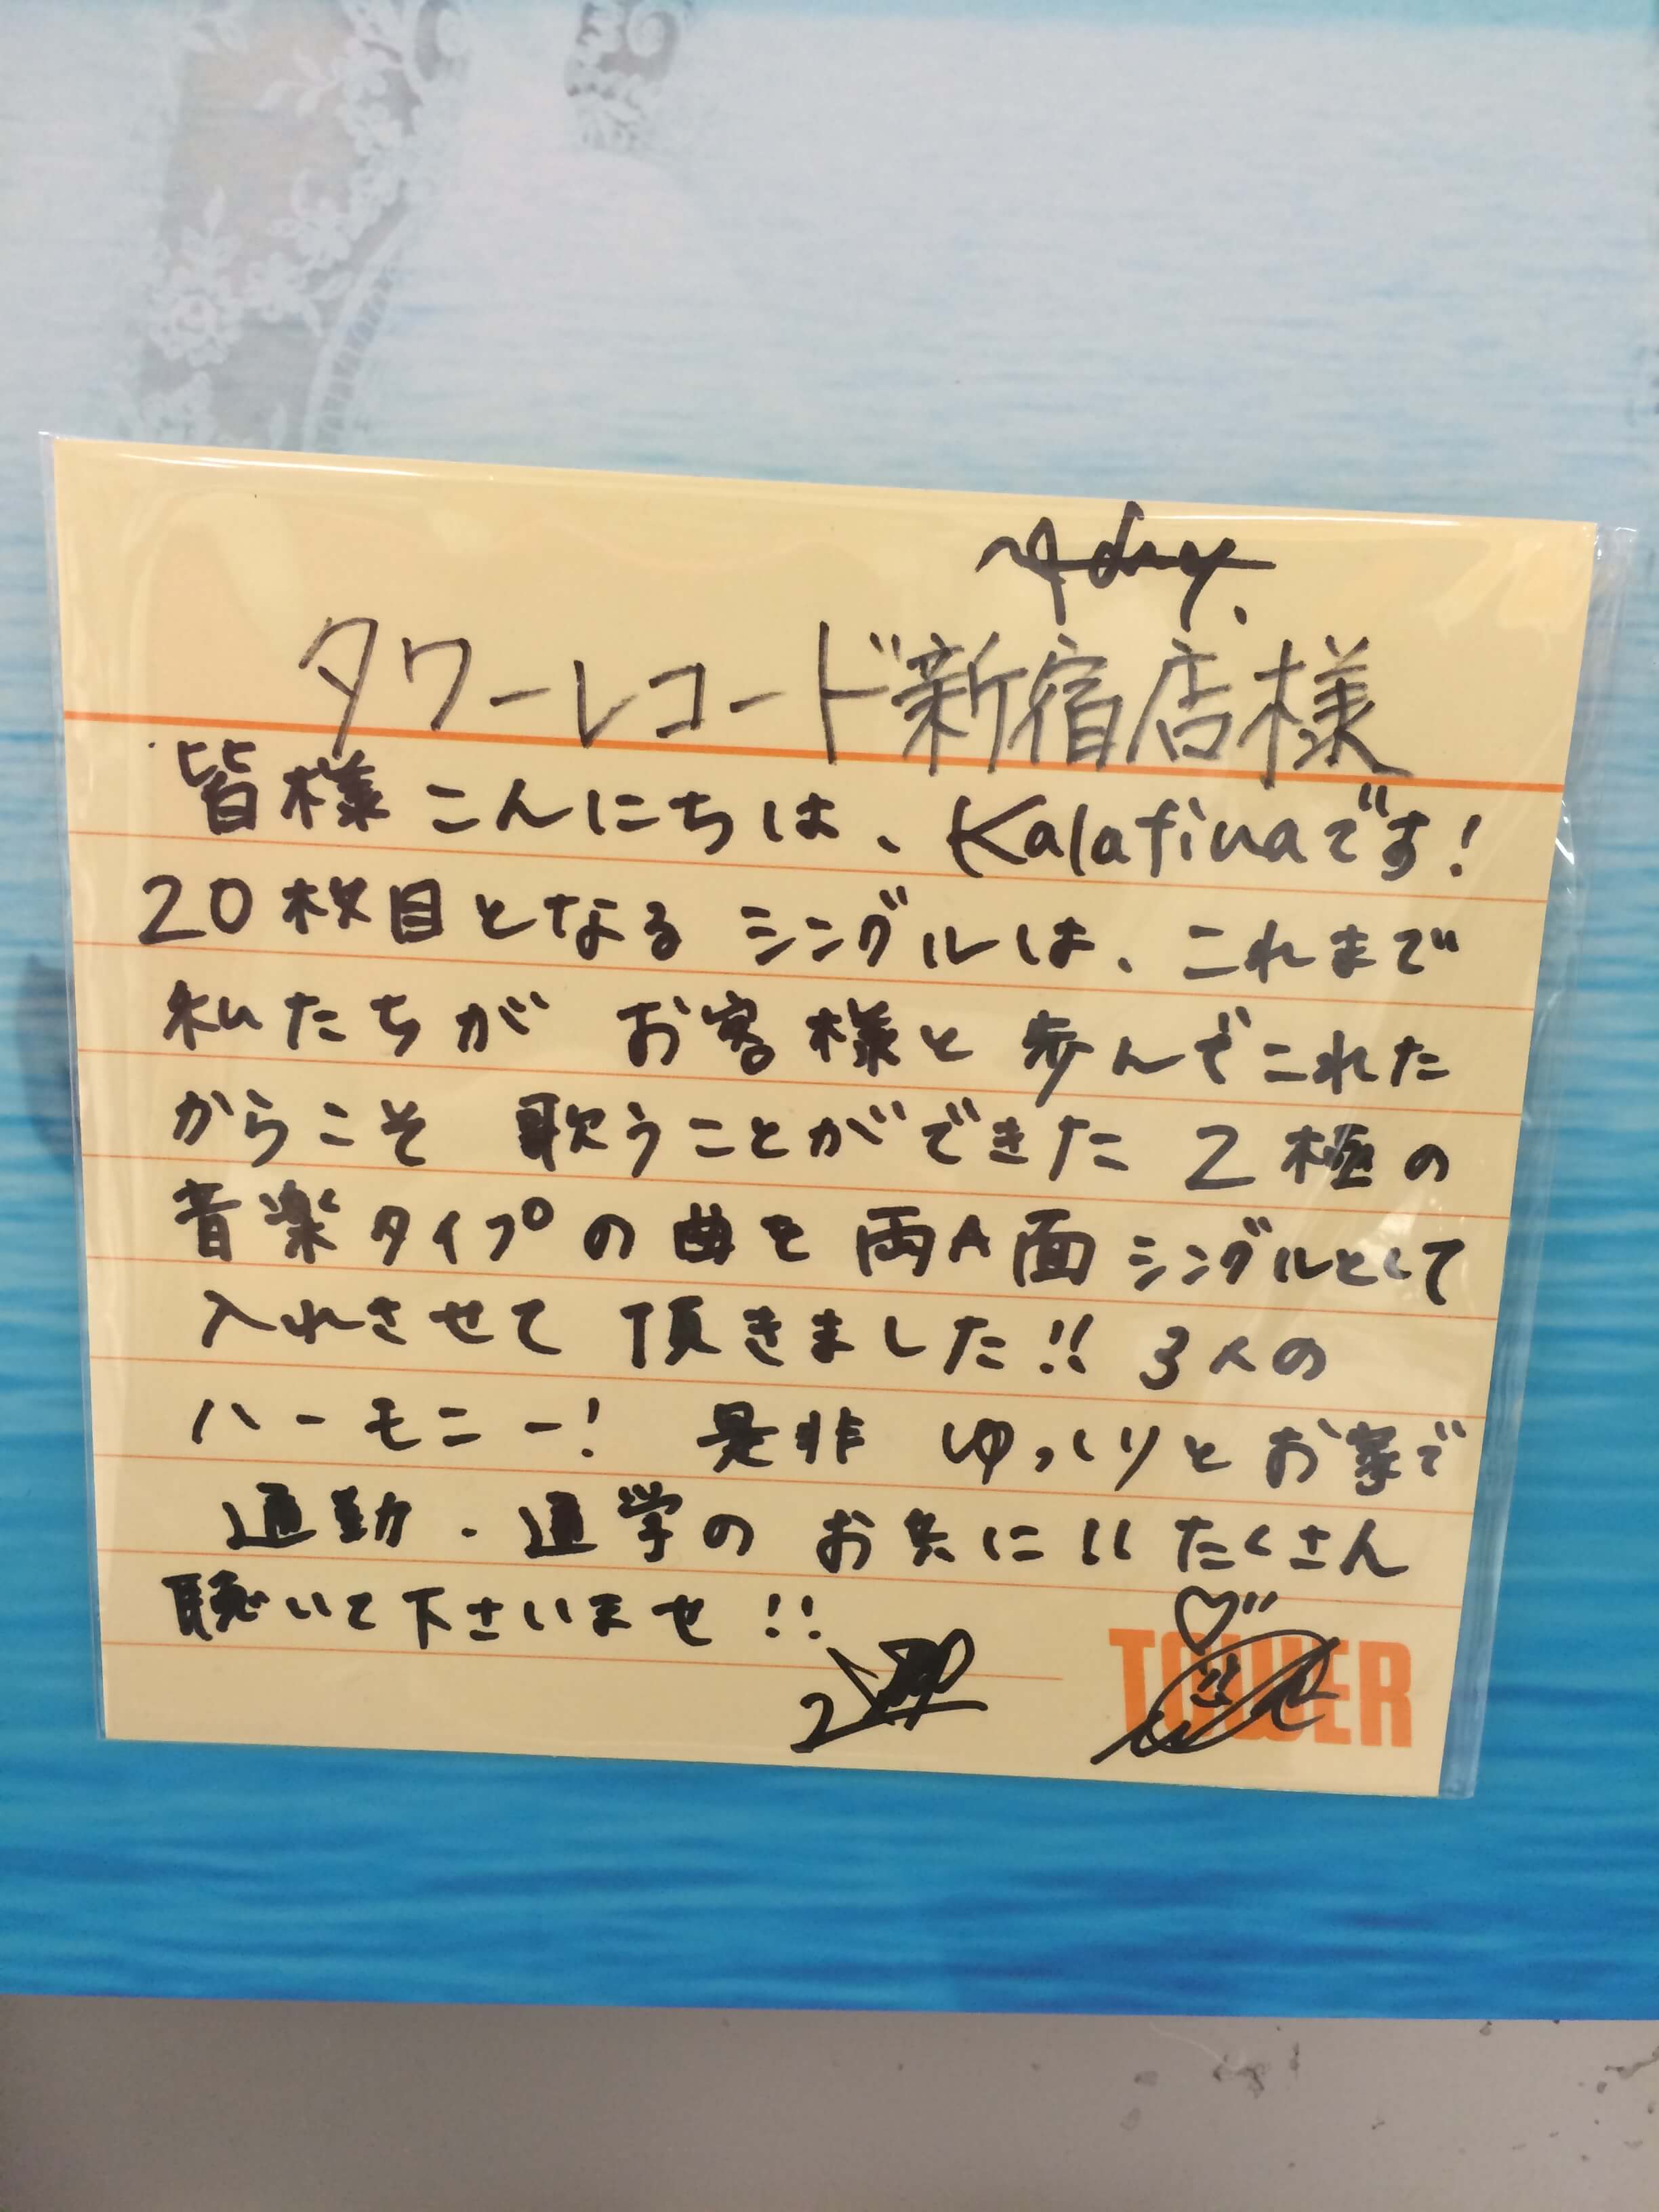 タワーレコード新宿店様
皆様こんにちは、Kalafinaです!
20枚目となるシングルは、これまで
私たちが お客様と歩んでこれた
からこそ 歌うことができた 2極の
音楽タイプの曲を両A面シングルとして
入れさせて頂きました!! 3人の
ハーモニー! 是非 ゆっくりとお家で
通勤・通学の お共に!! たくさん
聴いて下さいませ!!
TOWER